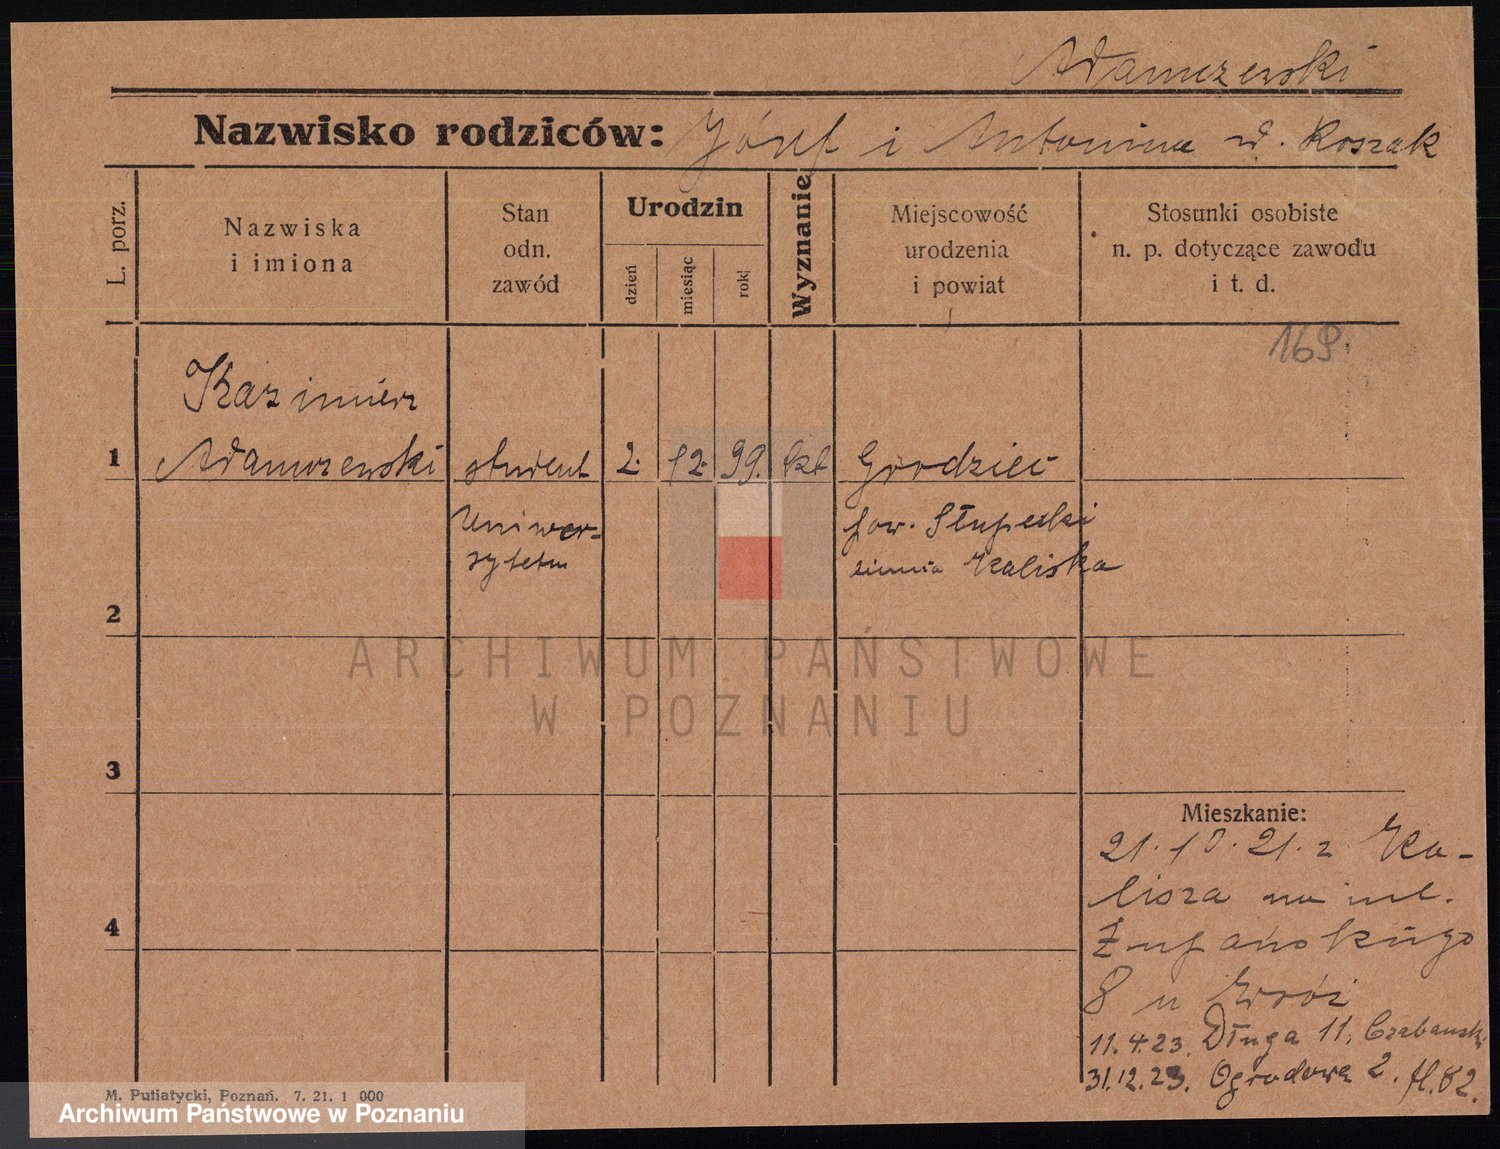 Adamczewski
Nazwisko rodziców: Józef i Antonina d. Koszak
L. porz.
Nazwiska
i imiona
Stan
odn.
zawód
Urodzin
dzień
miesiąc
rok
Wyznanie
Miejscowość
urodzenia
i powiat
Stosunki osobiste
n. p. dotyczące zawodu
i t. d.
169.
Kazimierz
1 Adamczewski student 2. 12. 99. kat Grodziec
Uniwer-
sytetu
pow. Słupecki
ziemia Kaliska
2
3
4
Mieszkanie:
21.10.21. z Ka-
lisza na ul.
Żupańskiego
8 u
11.4.23. Długa 11. Czabański
31.12.23. Ogrodowa 2.
M. Putiatycki, Poznań. 7. 21. 1 000
ARCHIWUM PAŃSTWOWE
W POZNANIU
Archiwum Państwowe w Poznaniu